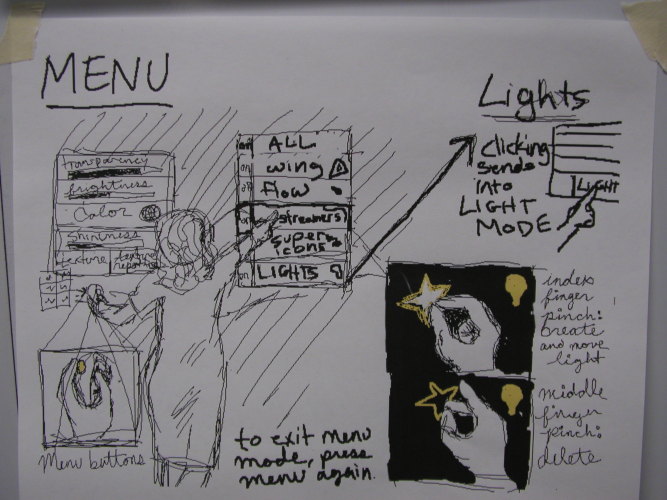 MENU
transparency
brightness
Color
shininess
texture
texture
on ALL
on wing
off flow
on streamers
super
icons
on LIGHTS
Menu buttons
to exit menu
mode, press
menu again.
Lights
clicking
sends
into
LIGHT
MODE
LIGHT
index
finger
pinch:
create
and move
light
middle
finger
pinch:
delete